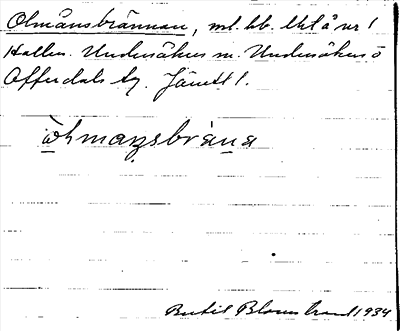 Olmånsbrännan, ml. bb. lktå nr 1
Hallen. Undersåkers sn. Undersåkers o
Offerdals tg. Jämtl.
òhmaŋsbrana
Bertil Blomstrand 1934